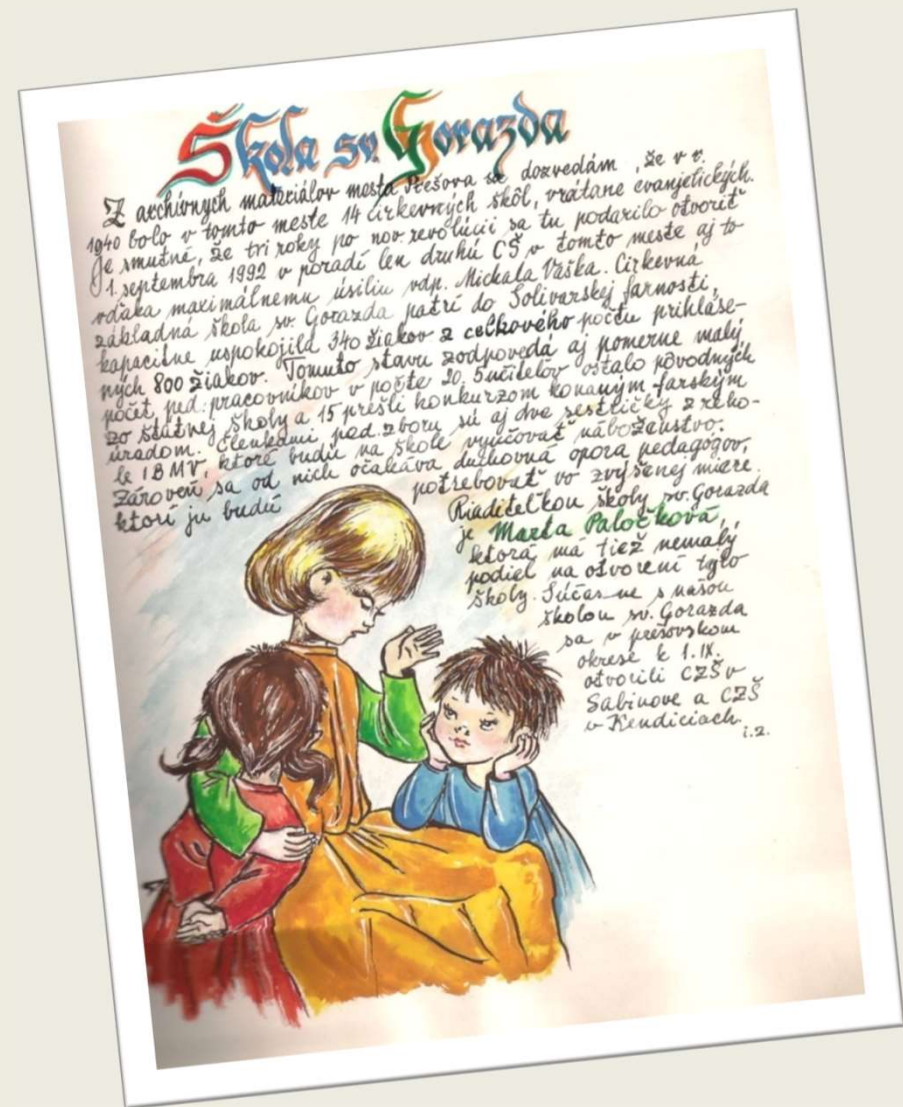 Škola sv. Gorazda
Z archívnych materiálov mesta Prešova sa dozvedám, že v r.
1940 bolo v tomto meste 14 cirkevných škôl, vrátane evanjetických.
Je smutné, že tri roky po nov. revolúcii sa tu podarilo otvoriť
1. septembra 1992 v poradí len druhú CŠ v tomto meste aj to
vďaka maximálnemu úsiliu vdp. Michala Vaška. Cirkevná
základná škola sv. Gorazda patrí do Solivarskej farnosti,
kapacitne uspokojila 340 žiakov z celkového počtu prihláse-
ných 800 žiakov. Tomuto stavu zodpovedá aj pomerne malý
počet ped. pracovníkov v počte 20. 5 učiteľov ostalo pôvodných
zo štátnej školy a 15 prešli konkurzom konaným farským
úradom. Členkami ped. zboru sú aj dve sestričky z reho-
le IBMV, ktoré budú na škole vyučovať náboženstvo.
Zároveň sa od nich očakáva duchovná opora pedagógov,
ktorí ju budú potrebovať vo zvýšenej miere.
Riaditeľkou školy sv. Gorazda
je Marta Paločková,
ktorá má tiež nemalý
podiel na otvorení tejto
školy. Súčasne s našou
školou sv. Gorazda
sa v prešovskom
okrese k 1.IX.
otvorili CZŠ v
Sabinove a CZŠ
v Kendiciach.
i.2.